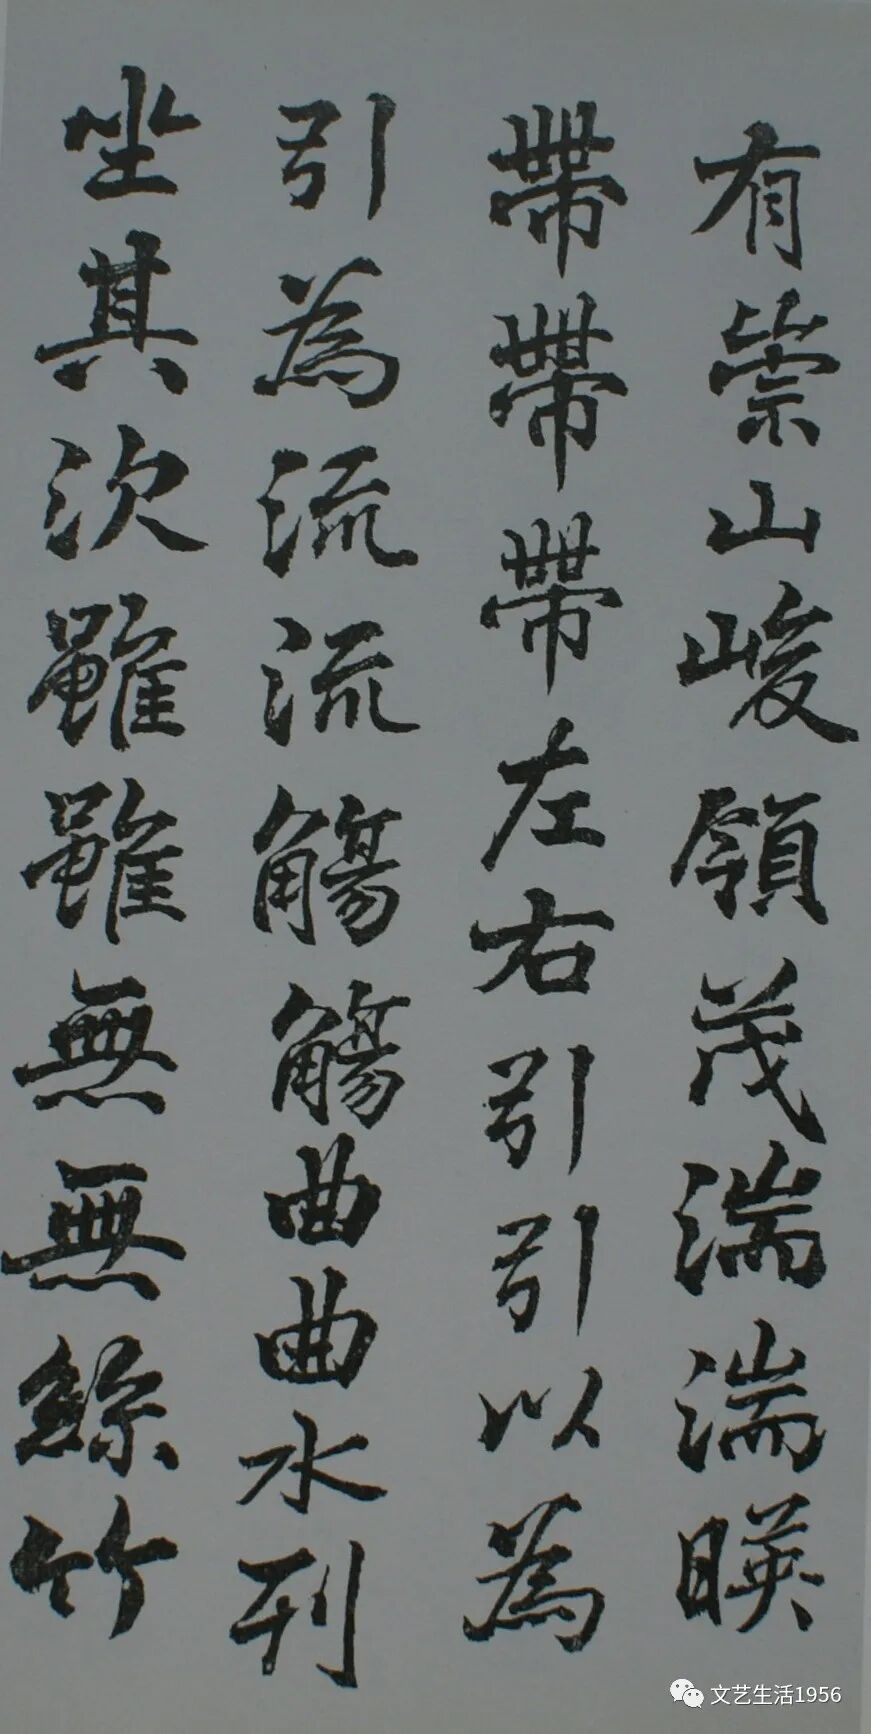 有崇山峻領茂湍湍暎
帶帶帶左右引引以為
引為流流觴觴曲曲水列
坐其次雖雖無無絲竹
文艺生活1956